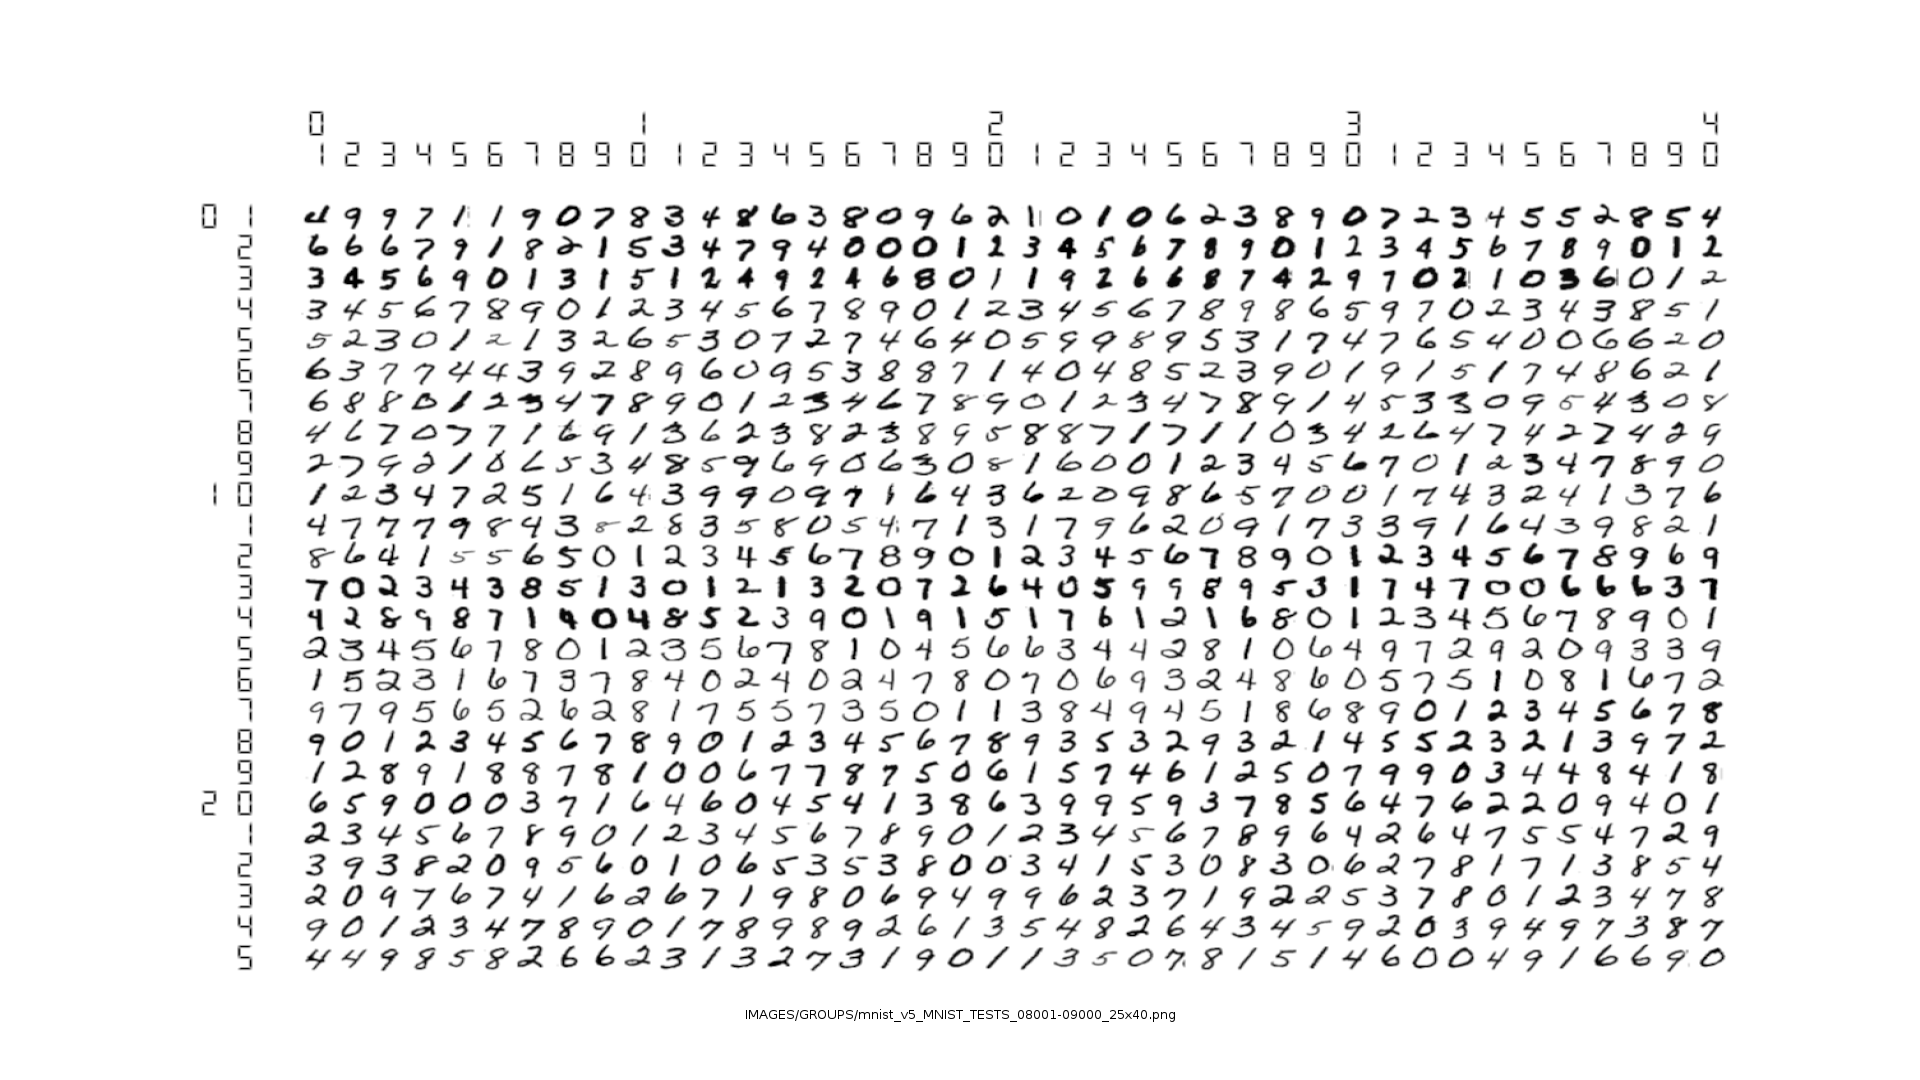 0 1 2 3 4
1 2 3 4 5 6 7 8 9 0 1 2 3 4 5 6 7 8 9 0 1 2 3 4 5 6 7 8 9 0 1 2 3 4 5 6 7 8 9 0
0 1 4 9 9 7 1 1 9 0 7 8 3 4 8 6 3 8 0 9 6 2 1 0 1 0 6 2 3 8 9 0 7 2 3 4 5 5 2 8 5 4
2 6 6 6 7 9 1 8 2 1 5 3 4 7 9 4 0 0 0 1 2 3 4 5 6 7 8 9 0 1 2 3 4 5 6 7 8 9 0 1 2
3 3 4 5 6 9 0 1 3 1 5 1 2 4 9 2 4 6 8 0 1 1 9 2 6 6 8 7 4 2 9 7 0 2 1 0 3 6 0 1 2
4 3 4 5 6 7 8 9 0 1 2 3 4 5 6 7 8 9 0 1 2 3 4 5 6 7 8 9 8 6 5 9 7 0 2 3 4 3 8 5 1
5 5 2 3 0 1 2 1 3 2 6 5 3 0 7 2 7 4 6 4 0 5 9 9 8 9 5 3 1 7 4 7 6 5 4 0 0 6 6 2 0
6 6 3 7 7 4 4 3 9 2 8 9 6 0 9 5 3 8 8 7 1 4 0 4 8 5 2 3 9 0 1 9 1 5 1 7 4 8 6 2 1
7 6 8 8 0 1 2 3 4 7 8 9 0 1 2 3 4 6 7 8 9 0 1 2 3 4 7 8 9 1 4 5 3 3 0 9 5 4 3 0 8
8 4 6 7 0 7 7 1 6 9 1 3 6 2 3 8 2 3 8 9 5 8 8 7 1 7 1 1 0 3 4 2 6 4 7 4 2 7 4 2 9
9 2 7 9 2 1 0 6 5 3 4 8 5 9 6 9 0 6 3 0 8 1 6 0 0 1 2 3 4 5 6 7 0 1 2 3 4 7 8 9 0
1 0 1 2 3 4 7 2 5 1 6 4 3 9 9 0 9 7 1 6 4 3 6 2 0 9 8 6 5 7 0 0 1 7 4 3 2 4 1 3 7 6
1 4 7 7 7 9 8 4 3 8 2 8 3 5 8 0 5 4 7 1 3 1 7 9 6 2 0 9 1 7 3 3 9 1 6 4 3 9 8 2 1
2 8 6 4 1 5 5 6 5 0 1 2 3 4 5 6 7 8 9 0 1 2 3 4 5 6 7 8 9 0 1 2 3 4 5 6 7 8 9 6 9
3 7 0 2 3 4 3 8 5 1 3 0 1 2 1 3 2 0 7 2 6 4 0 5 9 9 8 9 5 3 1 7 4 7 0 0 6 6 6 3 7
4 4 2 8 9 8 7 1 4 0 4 8 5 2 3 9 0 1 9 1 5 1 7 6 1 2 1 6 8 0 1 2 3 4 5 6 7 8 9 0 1
5 2 3 4 5 6 7 8 0 1 2 3 5 6 7 8 1 0 4 5 6 6 3 4 4 2 8 1 0 6 4 9 7 2 9 2 0 9 3 3 9
6 1 5 2 3 1 6 7 3 7 8 4 0 2 4 0 2 4 7 8 0 7 0 6 9 3 2 4 8 6 0 5 7 5 1 0 8 1 6 7 2
7 9 7 9 5 6 5 2 6 2 8 1 7 5 5 7 3 5 0 1 1 3 8 4 9 4 5 1 8 6 8 9 0 1 2 3 4 5 6 7 8
8 9 0 1 2 3 4 5 6 7 8 9 0 1 2 3 4 5 6 7 8 9 3 5 3 2 9 3 2 1 4 5 5 2 3 2 1 3 9 7 2
9 1 2 8 9 1 8 8 7 8 1 0 0 6 7 7 8 7 5 0 6 1 5 7 4 6 1 2 5 0 7 9 9 0 3 4 4 8 4 1 8
2 0 6 5 9 0 0 0 3 7 1 6 4 6 0 4 5 4 1 3 8 6 3 9 9 5 9 3 7 8 5 6 4 7 6 2 2 0 9 4 0 1
1 2 3 4 5 6 7 8 9 0 1 2 3 4 5 6 7 8 9 0 1 2 3 4 5 6 7 8 9 6 4 2 6 4 7 5 5 4 7 2 9
2 3 9 3 8 2 0 9 5 6 0 1 0 6 5 3 5 3 8 0 0 3 4 1 5 3 0 8 3 0 6 2 7 8 1 7 1 3 8 5 4
3 2 0 9 7 6 7 4 1 6 2 6 7 1 9 8 0 6 9 4 9 9 6 2 3 7 1 9 2 2 5 3 7 8 0 1 2 3 4 7 8
4 9 0 1 2 3 4 7 8 9 0 1 7 8 9 8 9 2 6 1 3 5 4 8 2 6 4 3 4 5 9 2 0 3 9 4 9 7 3 8 7
5 4 4 9 8 5 8 2 6 6 2 3 1 3 2 7 3 1 9 0 1 1 3 5 0 7 8 1 5 1 4 6 0 0 4 9 1 6 6 9 0
IMAGES/GROUPS/mnist_v5_MNIST_TESTS_08001-09000_25x40.png